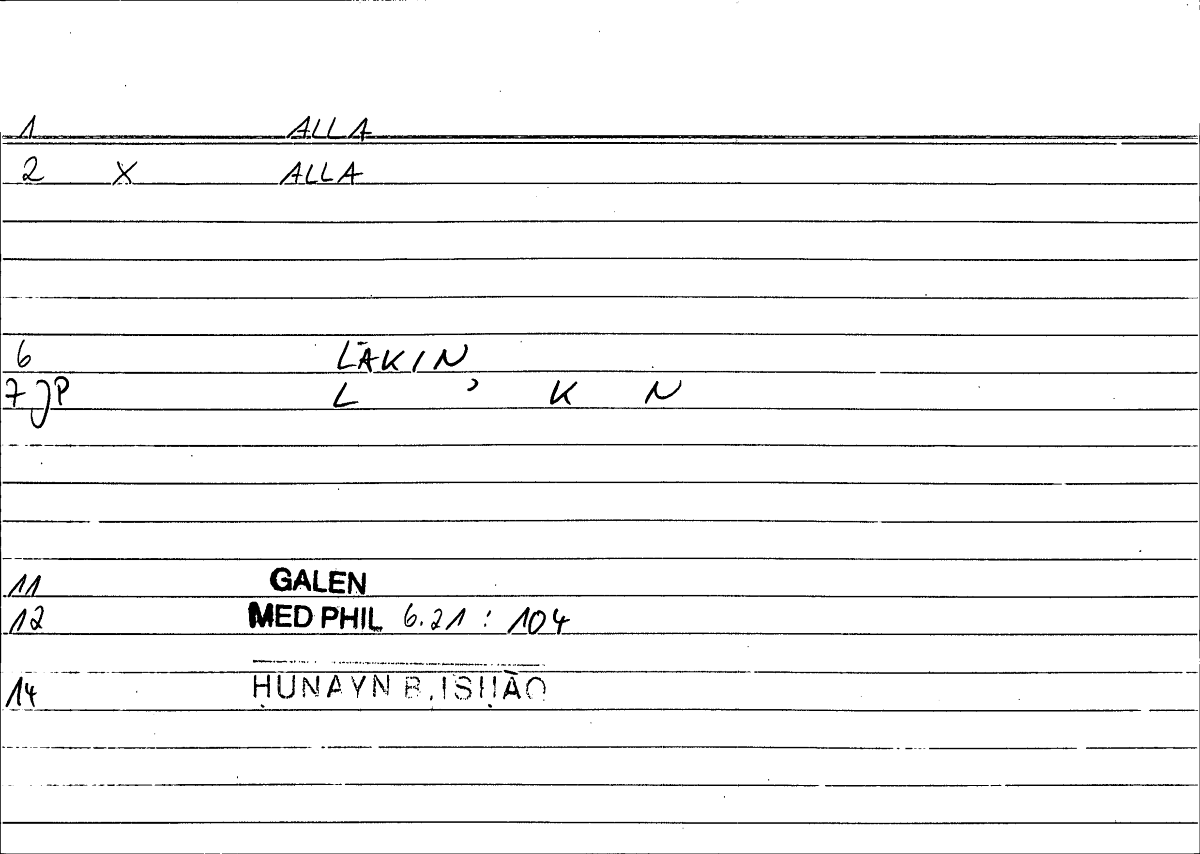 1 ALLA
2 X ALLA
6 LĀKIN
7 JP L ʾ K N
11 GALEN
12 MED PHIL 6.21 : 104
14 ḤUNAYN B. ISḤĀQ